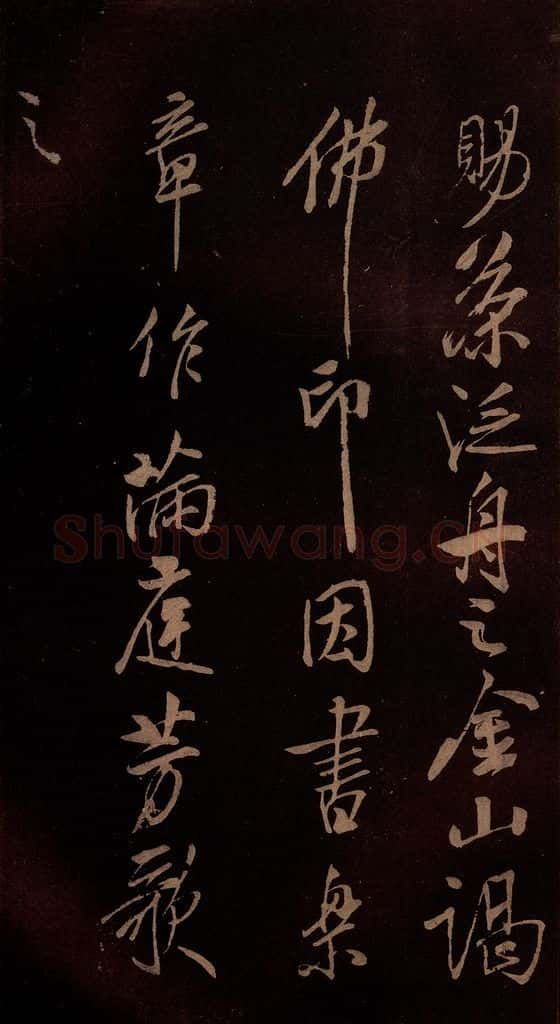 賜茶泛舟之金山謁
佛印因書樂
章作滿庭芳歌
之
Shufawang.CN